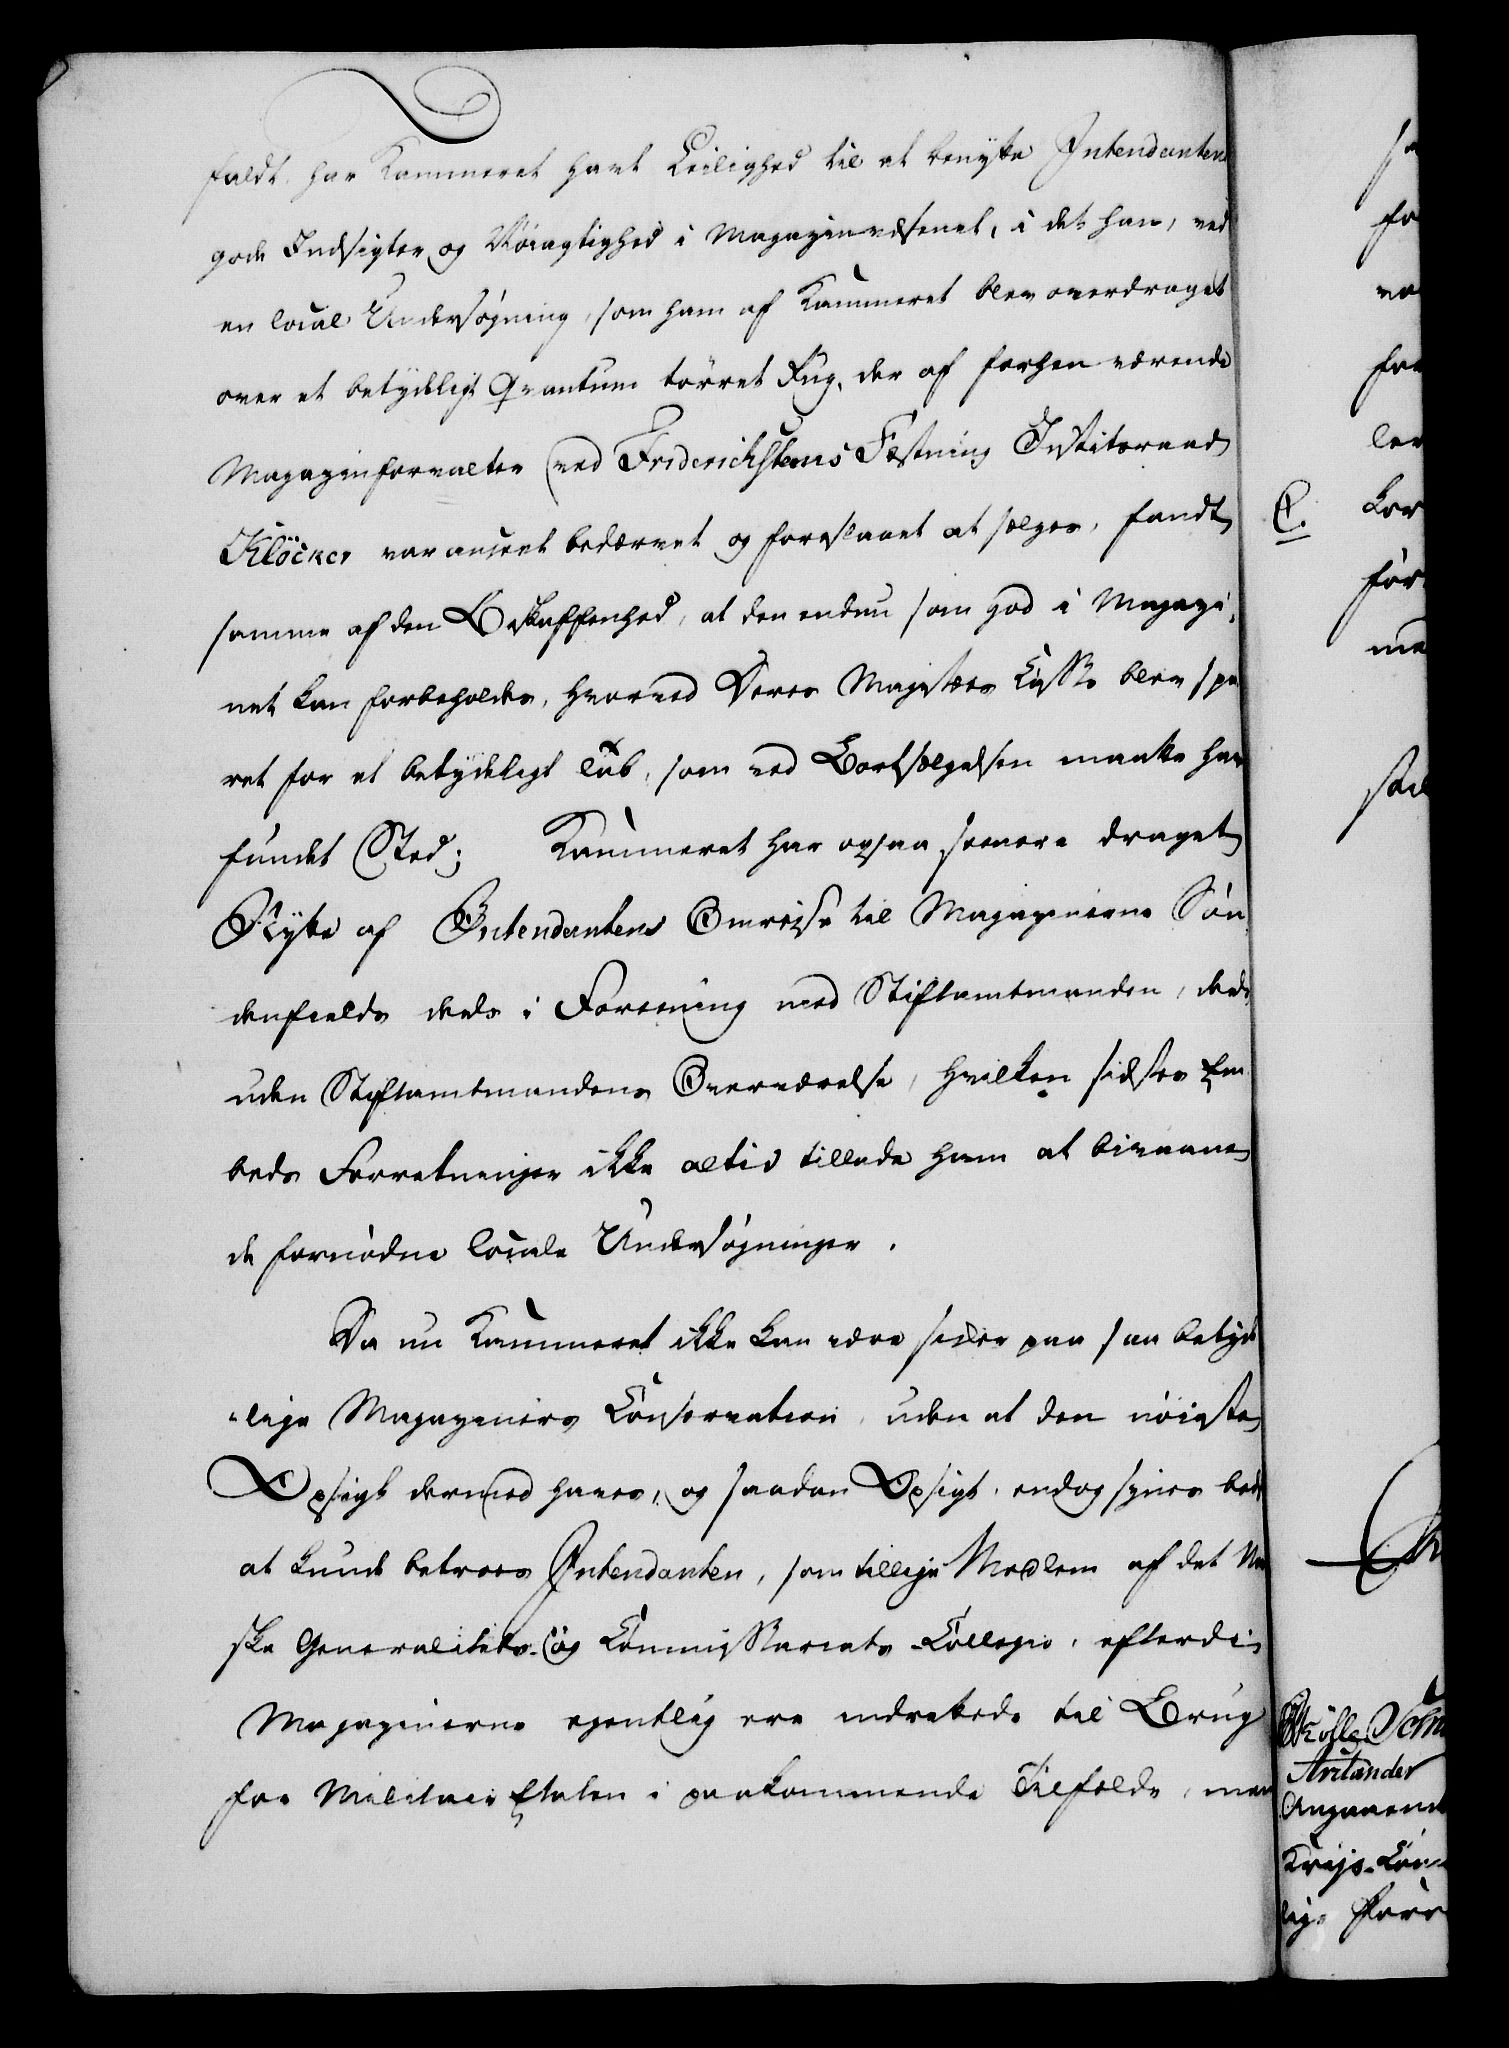 faldt. har Kammeret havt Leilighed til at benytte Intendantens
gode Indsigter og Nøiagtighed i Magazinvæsenet, i det han, ved
en local Undersøgning, som ham af Kammeret blev overdraget
over et betydeligt Qvantum tørret Rug, der af forhen værende
Magazinforvalter ved Friderichsteens Fæstning Justitsraad
Klöcker var anseet bedærvet og foreslaaet at sælges, fandt
samme af den Beskaffenhed, at den endnu som god i Magazi-
net kan forbeholdes, hvorved Deres Majestæts Casse blev spa
ret for et betydeligt Tab, som ved Bortsælgelsen maatte have
fundet Sted; Kammeret har ogsaa senere draget
Nytte af Intendantens Omreise til Magazinerne Søn
denfields deels i Forening med Stiftamtmanden, deels
uden Stiftamtmandens Overværelse, hvilken sidstes Em
beds Forretninger ikke altid tillade ham at bivaane
de fornødne locale Undersøgninger.
Da nu Kammeret ikke kan være sikker paa saa betyde
-lige Magaziners Conservation, uden at den nøieste
Opsigt dermed haves, og saadan Opsigt, endog synes best
at kunde betroes Intendanten, som tillige Medlem af det No
ske Generalitets- og Commissariats-Collegio, efterdi
Magazinerne egentlig ere indrettede til Brug
for Militair Etaten i paakommende Tilfælde, men
sa
fo
va
for
ler
C.
kor
før
me
Arctander
Angaaend
Krigs-Com
lig